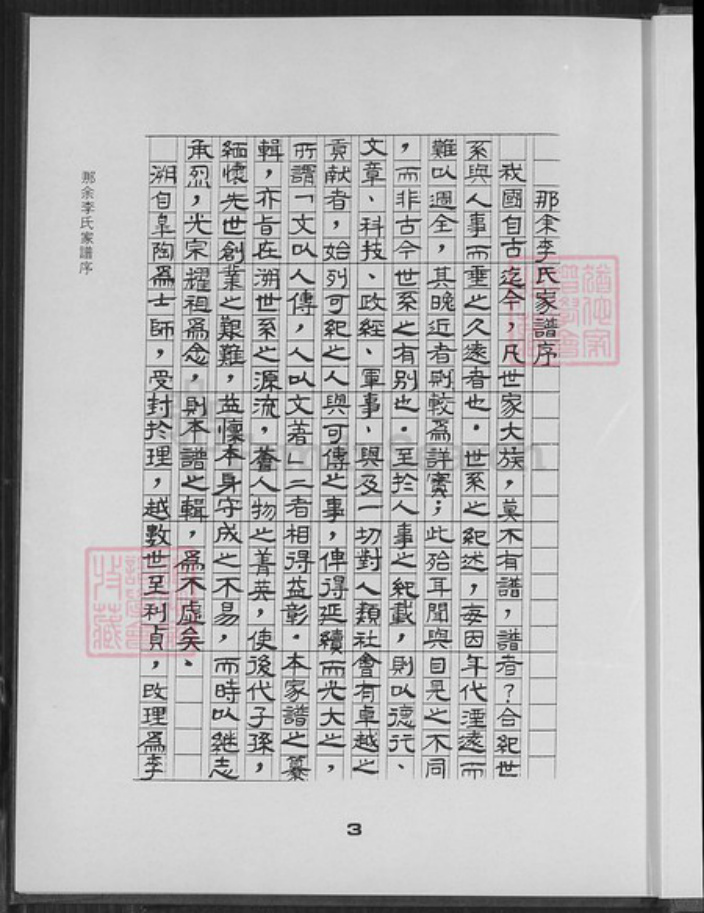 那余李氏家譜序
我國自古迄今，凡世家大族，莫不有譜，譜者？合紀世
系與人事而垂之久遠者也。世系之紀述，每因年代湮遠而
難以週全，其晚近者則較為詳實；此殆耳聞與目見之不同
，而非古今世系之有別也。至於人事之紀載，則以德行、
文章、科技、政經、軍事、與及一切對人類社會有卓越之
貢献者，始列可紀之人與可傳之事，俾得延續而光大之，
所謂「文以人傳，人以文著」二者相得益彰。本家譜之纂
輯，亦旨在溯世系之源流，薈人物之菁英，使後代子孫，
緬懷先世創業之艱難，益懍本身守成之不易，而時以繼志
承烈，光宗耀祖為念，則本譜之輯，為不虛矣、
溯自皐陶為士師，受封於理，越數世至利貞，改理為李
那余李氏家譜序
3